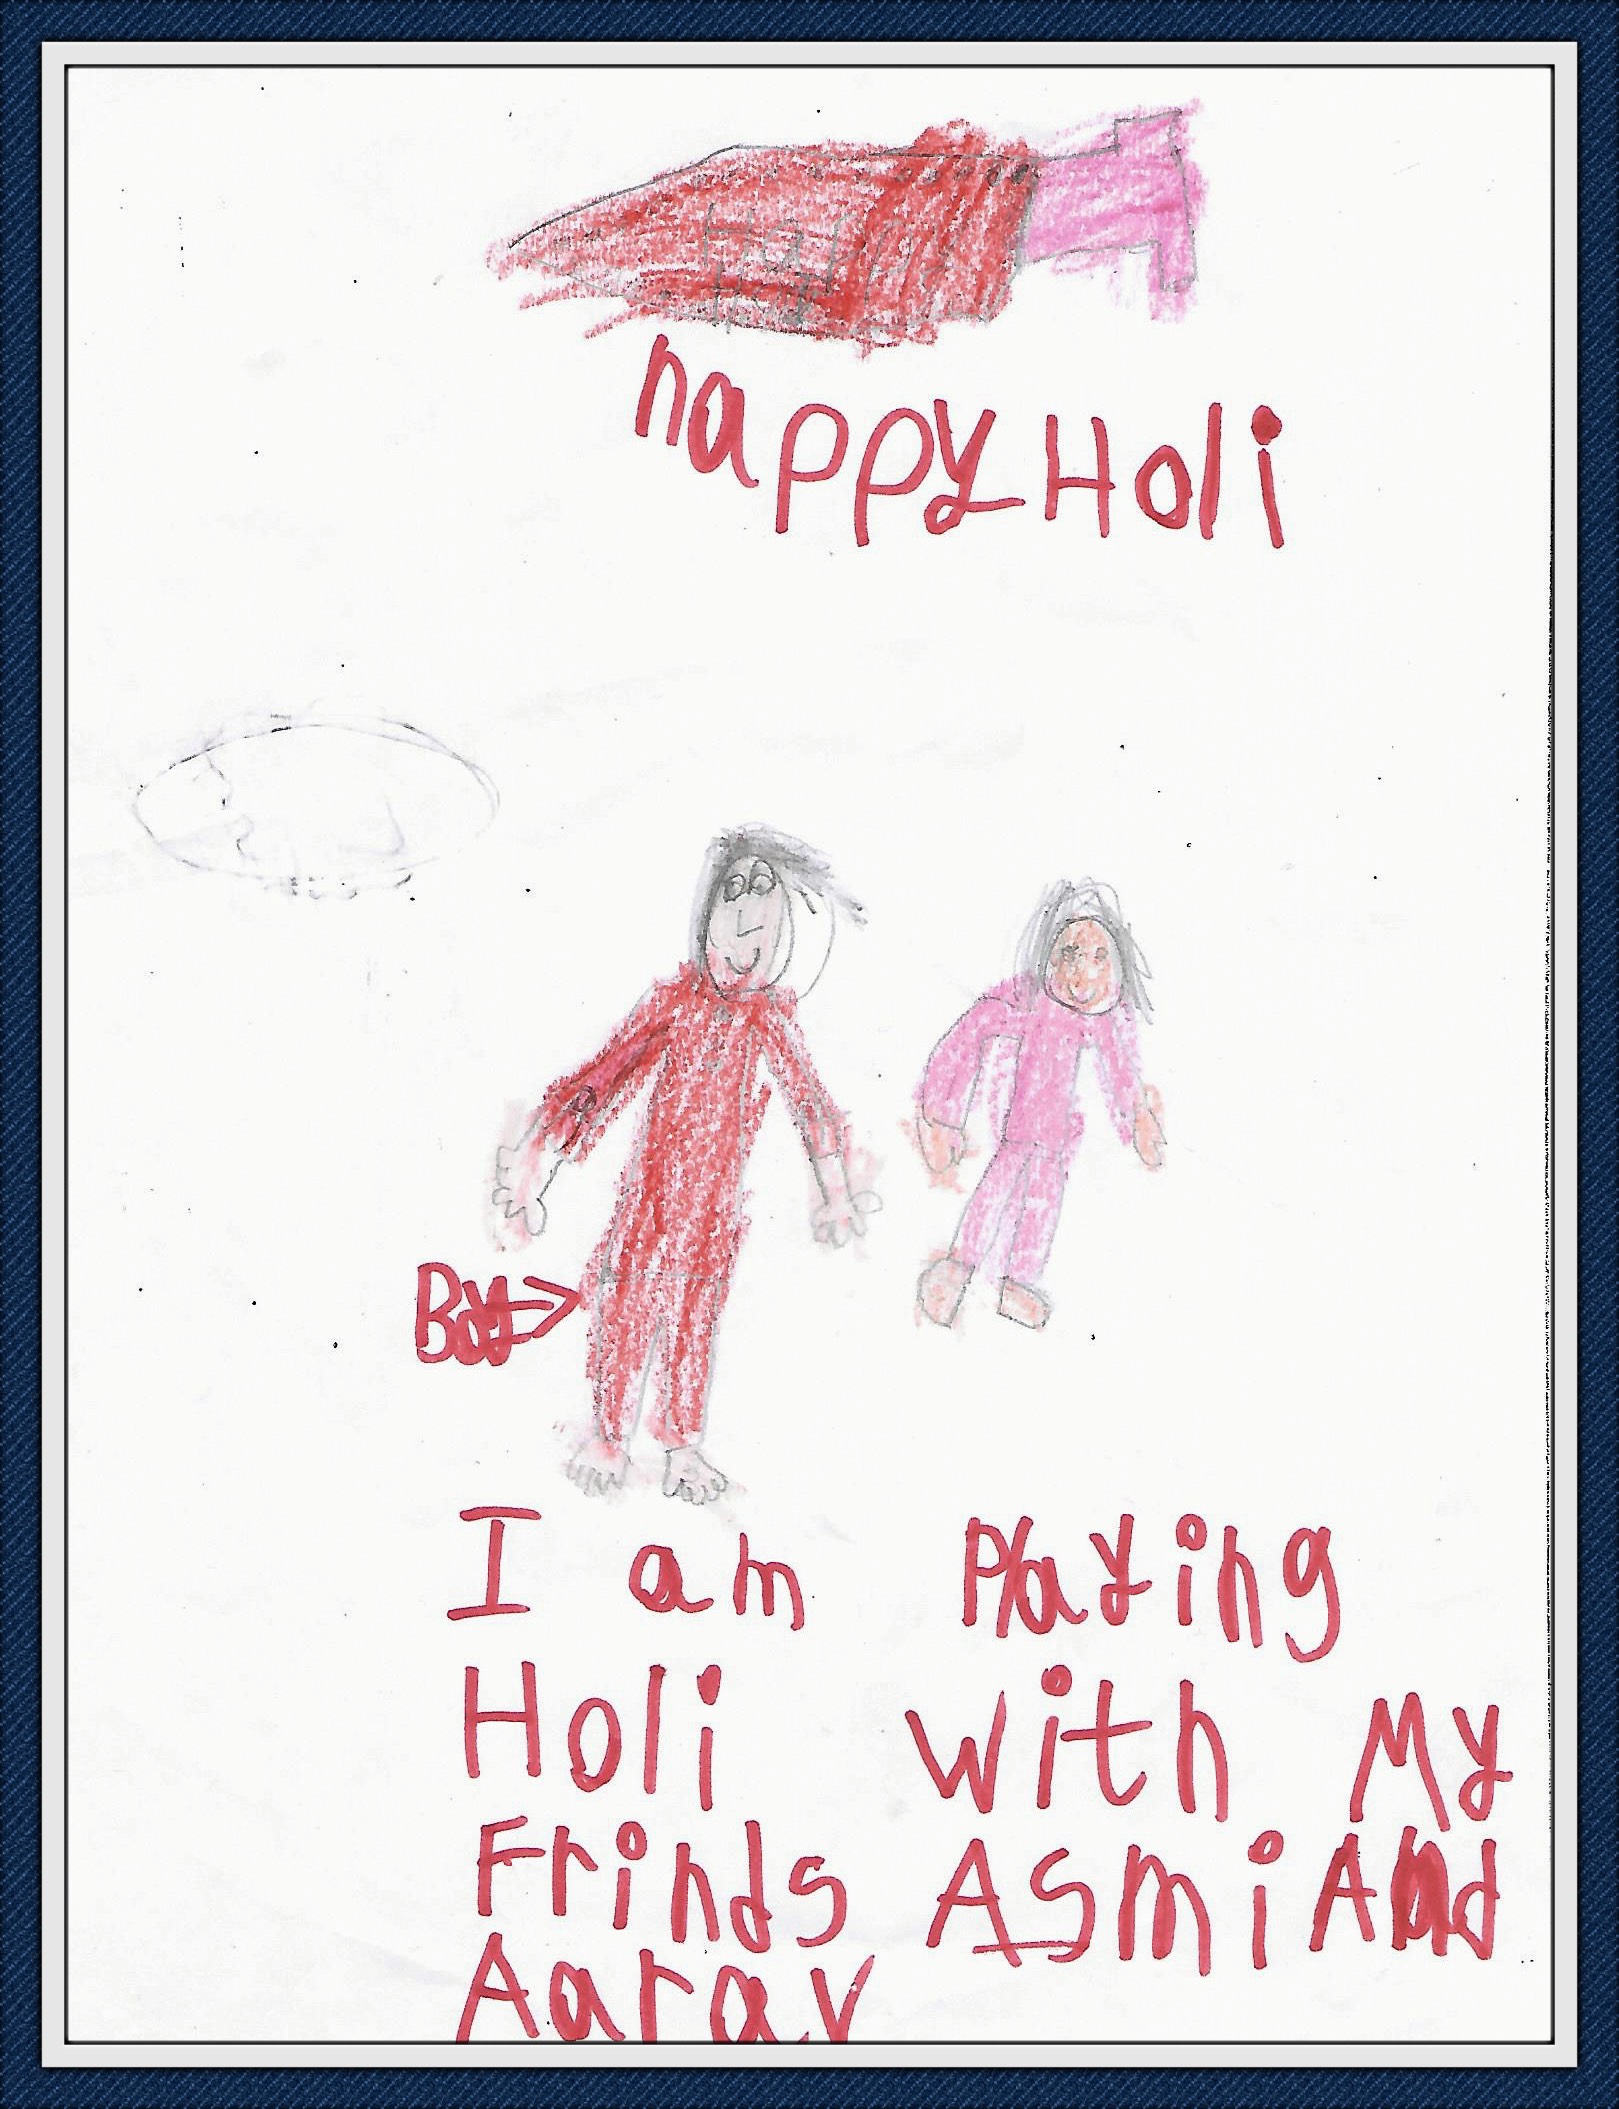 Happy
Holi
happy Holi
Boy
I am Playing
Holi with My
Frinds Asmi And
Aarav